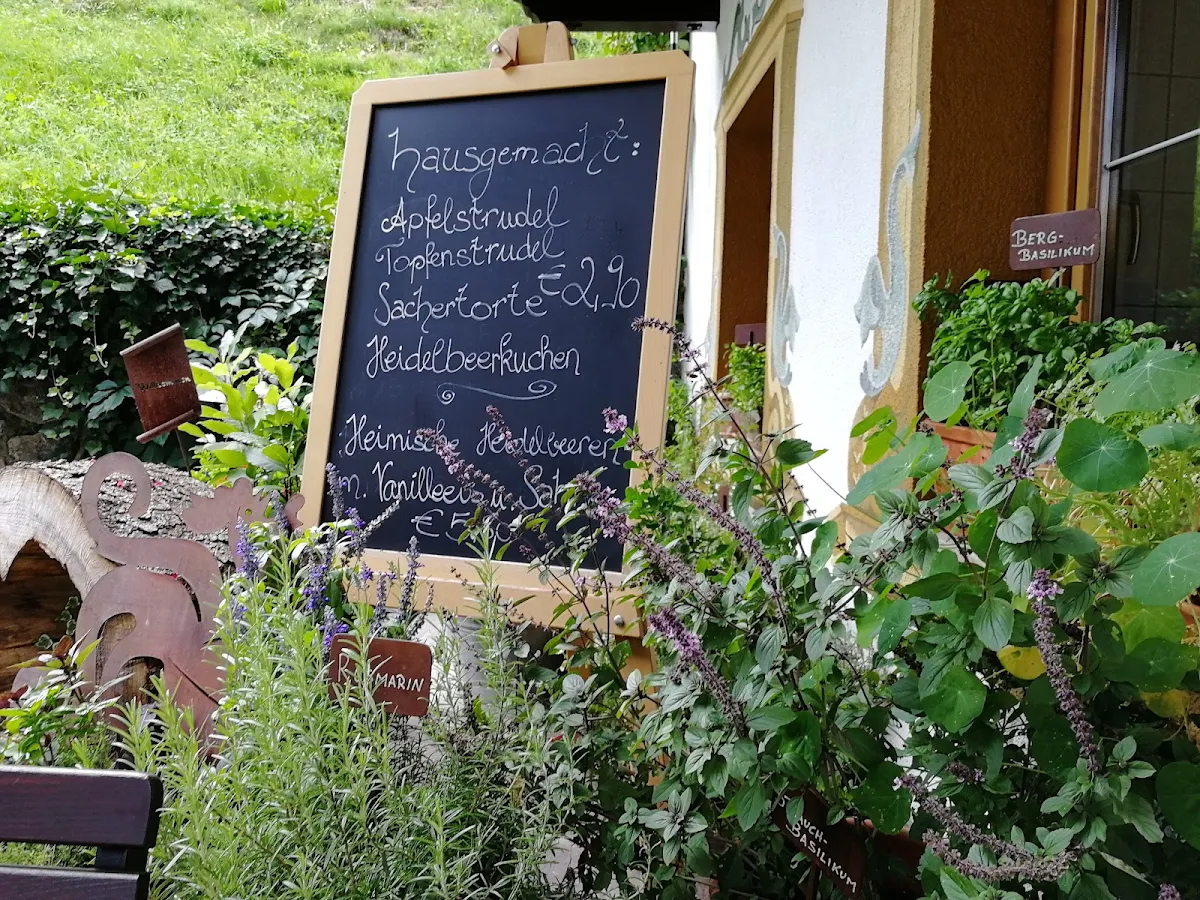 hausgemacht:
Apfelstrudel
Topfenstrudel
€2,90
Sachertorte
Heidelbeerkuchen
Heimische Heidelbeeren
m. Vanilleeis u.
€
BERG-
BASILIKUM
BASILIKUM